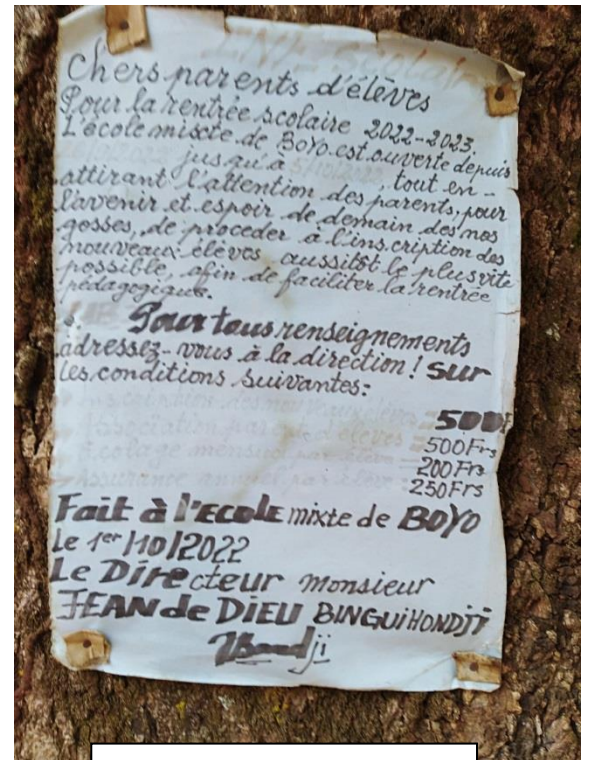 Scolaire
Chers parents d'élèves
Pour la rentrée scolaire 2022-2023.
L'école mixcte de BoYo est ouverte depuis
jusqu'à 5/10/2022, tout en-
attirant l'attention des parents, pour
l'avenir et espoir de demain des nos
gosses, de proceder à l'inscription des
nouveaux élèves aussitôt le plus vite
possible, afin de faciliter la rentrée
pédagogique.
Pour tous renseignements
adressez-vous à la direction! sur
les conditions suivantes:
Inscription des nouveaux élèves = 500F
Association parent d'élèves = 500Frs
Ecolage mensuel par élève = 200Frs
Assurance annuel par élève = 250Frs
Fait à l'ECOLE mixte de BOYO
le 1er/10/2022
Le Directeur monsieur
JEAN de DIEU BINGUIHONDJI